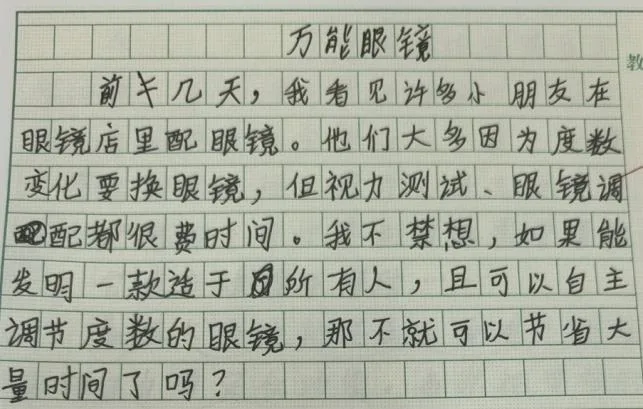 万能眼镜
前几天，我看见许多小朋友在
眼镜店里配眼镜。他们大多因为度数
变化要换眼镜，但视力测试、眼镜调
配都很费时间。我不禁想，如果能
发明一款适于所有人，且可以自主
调节度数的眼镜，那不就可以节省大
量时间了吗？